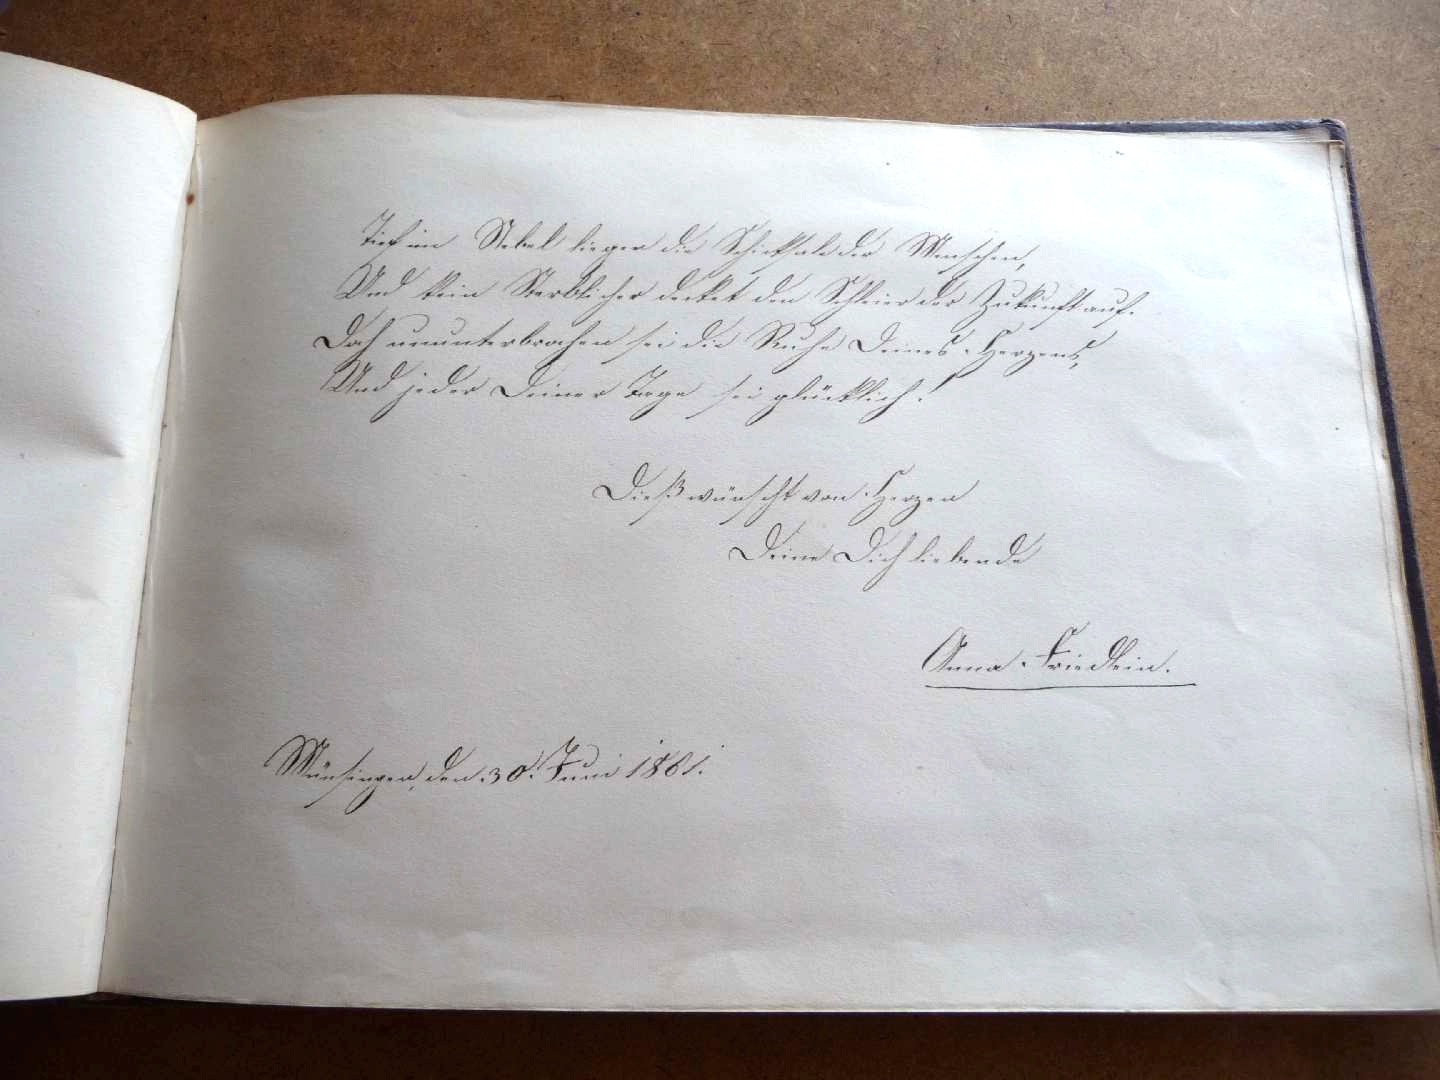 Tief im Nebel liegen die Schicksale der Menschen,
Und kein Sterblicher decket den Schleier der Zukunft auf.
Doch ununterbrochen sei die Ruhe Deines Herzens,
Und jeder Deiner Tage sei glücklich!
Dieß wünscht von Herzen
Deine Dich liebende
Anna Friedlein.
Münsingen, den 30. Juni 1881.